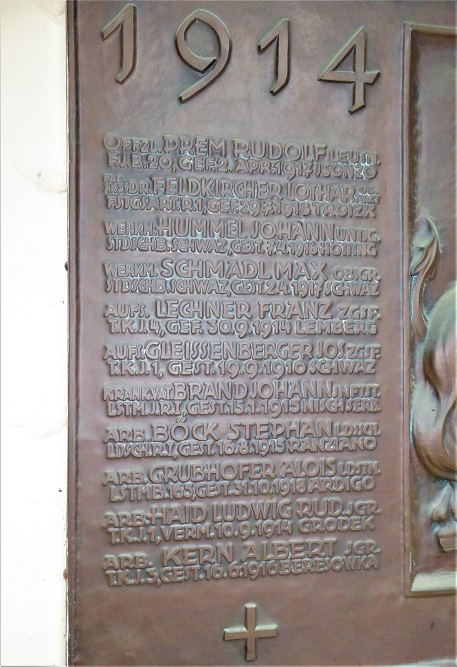 1914
OFFZL. PREM RUDOLF LEUTN.
F.J.B. 20, GEF. 2. APR. 1917 ISONZO
DR. FELDKIRCHER LOTHAR
GEF. 29.7.1918 TROIZK
WERKM. HUMMEL JOHANN UNTJG.
STDSCHB. SCHWAZ, GEST. 7.4.1916 HÖTTING
WERKM. SCHMADL MAX OBJGR.
STDSCHB. SCHWAZ, GEST. 24.1.1917 SCHWAZ
AUFS. LECHNER FRANZ ZGSF.
T.K.J. 4, GEF. 30.9.1914 LEMBERG
AUFS. GLEISSENBERGER JOS. ZGSF.
T.K.J. 1, GEST. 19.9.1916 SCHWAZ
KRANKVAT. BRAND JOHANN INFTST.
LSTM.I.R.I, GEST. 15.1.1915 NISCH SERB.
ARB. BÖCK STEPHAN LDSSCH.
LDSCH.R.I, GEST. 16.8.1915 RANZIANO
ARB. GRUBHOFER ALOIS LDSTM.
LSTMB. 165, GEST. 31.10.1918 ARDIGO
ARB. HAID LUDWIG RUD. JGR.
T.K.J. 1, VERM. 10.9.1914 GRODEK
ARB. KERN ALBERT JGR.
T.K.J. 3, GEST. 10.6.1916 BERESOWKA